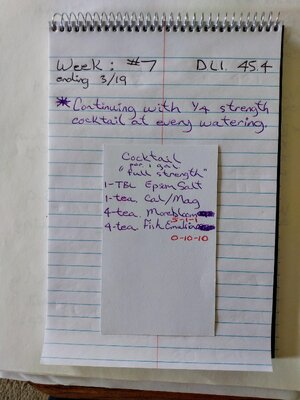 Week: #7 DLI. 45.4
ending 3/19
* Continuing with 1/4 strength
cocktail at every watering.
Cocktail
"per 1 gal
full strength"
1-TBL Epsom Salt
1-tea. Cal/Mag
4-tea. Morebloom
5-1-1
4-tea. Fish Emulsion
0-10-10